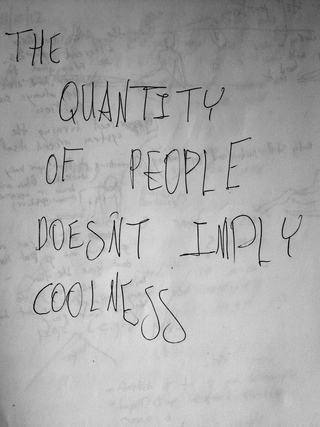 THE
QUANTITY
OF PEOPLE
DOESN'T IMPLY
COOLNESS